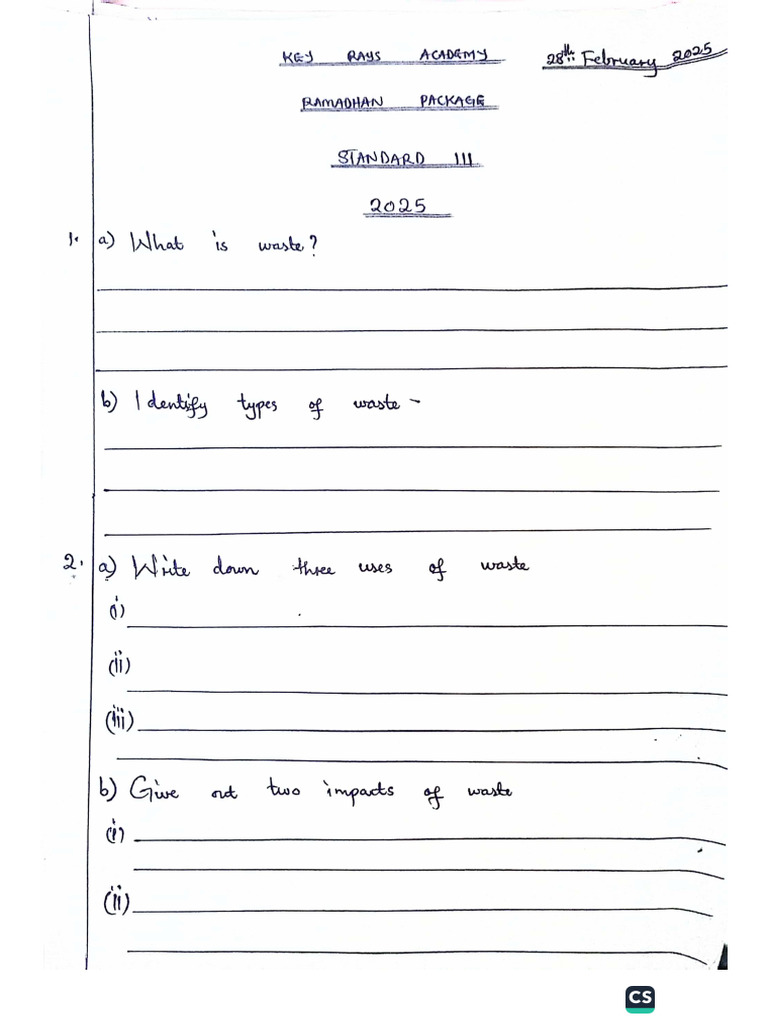 KEY RAYS ACADEMY 28th February 2025
RAMADHAN PACKAGE
STANDARD III
2025
1. a) What is waste?
b) Identify types of waste -
2. a) Write down three uses of waste
(i)
(ii)
(iii)
b) Give out two impacts of waste
(i)
(ii)
CS